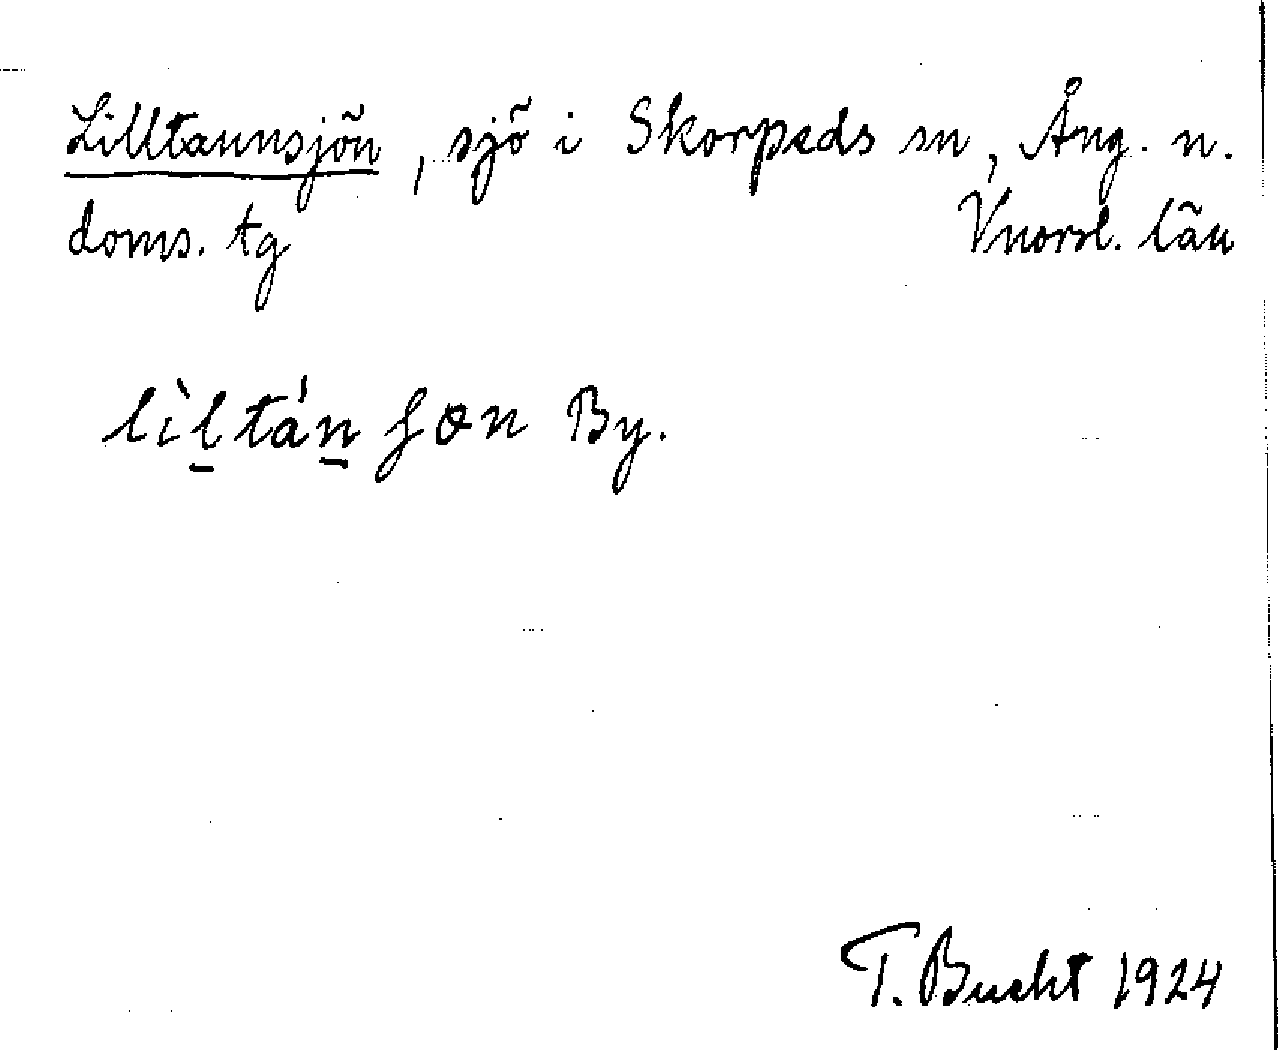 Lilltannsjön, sjö i Skorpeds sn, Ång. n.
doms. tg Vnorrl. län
lìl̲tán̲ ʃɷn By.
T. Bucht 1924